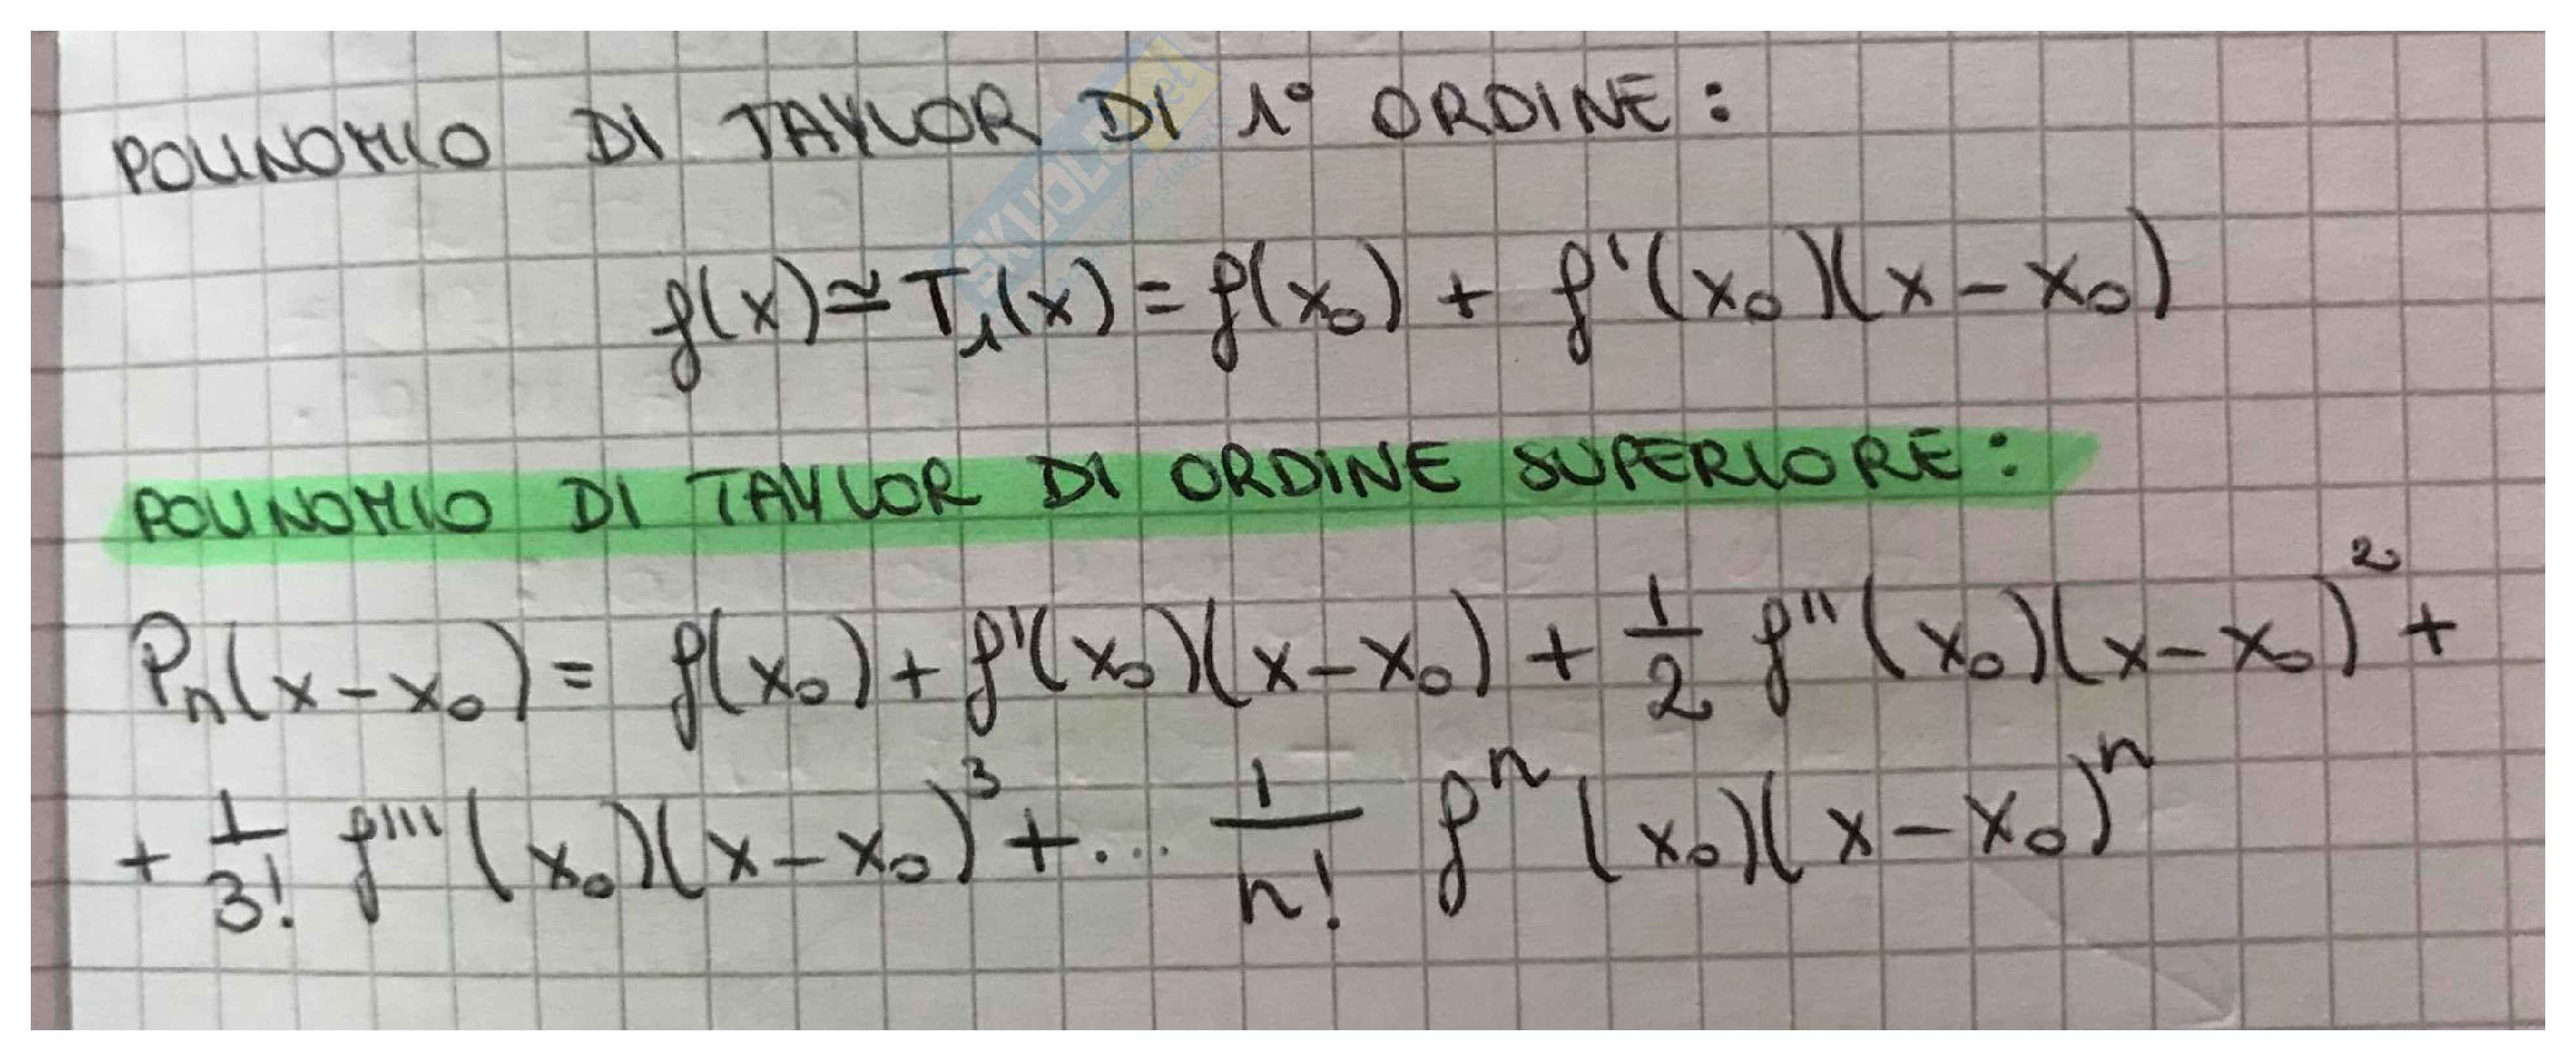 POLINOMIO DI TAYLOR DI 1° ORDINE:
f(x) ≃ T₁(x) = f(x₀) + f'(x₀)(x - x₀)
POLINOMIO DI TAYLOR DI ORDINE SUPERIORE:
Pₙ(x - x₀) = f(x₀) + f'(x₀)(x - x₀) + 1/2 f''(x₀)(x - x₀)² +
+ 1/3! f'''(x₀)(x - x₀)³ + ... 1/n! fⁿ(x₀)(x - x₀)ⁿ
SKUOLA.net